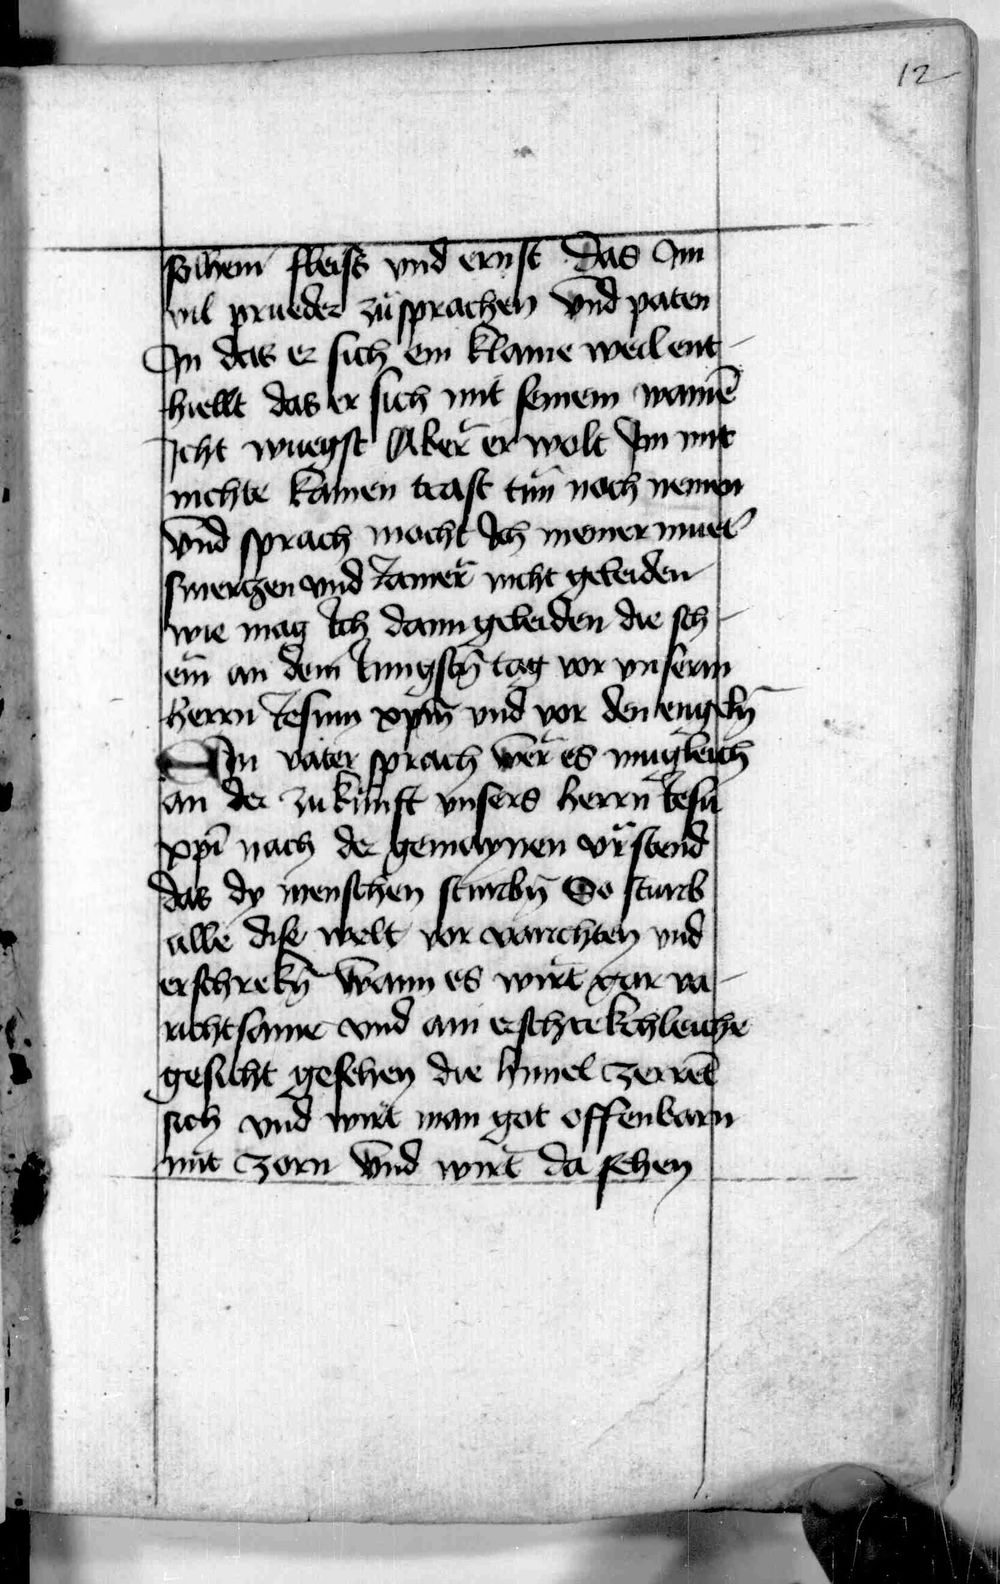 12
solhem fleiss vnd ernst Das Im
vil prueder zůsprachen vnd paten
In das er sich ein klaine weil ent-
hiellt das er sich mit seinem wainē
Icht wuegst Aber er wolt Im mit
nichte kainen trast tůn noch nemen
vnd sprach mocht Ich meiner muet̄
smerczen vnd Iamer nicht geleiden
wie mag Ich dann geleiden die sch-
em an dem Iungstn̄ tag vor vnserm
herrn Iesum xpm̄ vnd vor den engeln̄
Ain vater sprach wer es mugleich
an der zukůnft vnsers herrn Iesu
xpī nach der gemaynen vrstend
das dy menschen sturbn̄ So sturb
alle dise welt vor vorichten vnd
erschrekn̄ wann es wirt gar vo-
richtsame vnd ain erschrekchleiche
gesicht gesehen die himel zerret̄
sich vnd wirt man got offenbarn
mit zorn vnd wirt da sehen